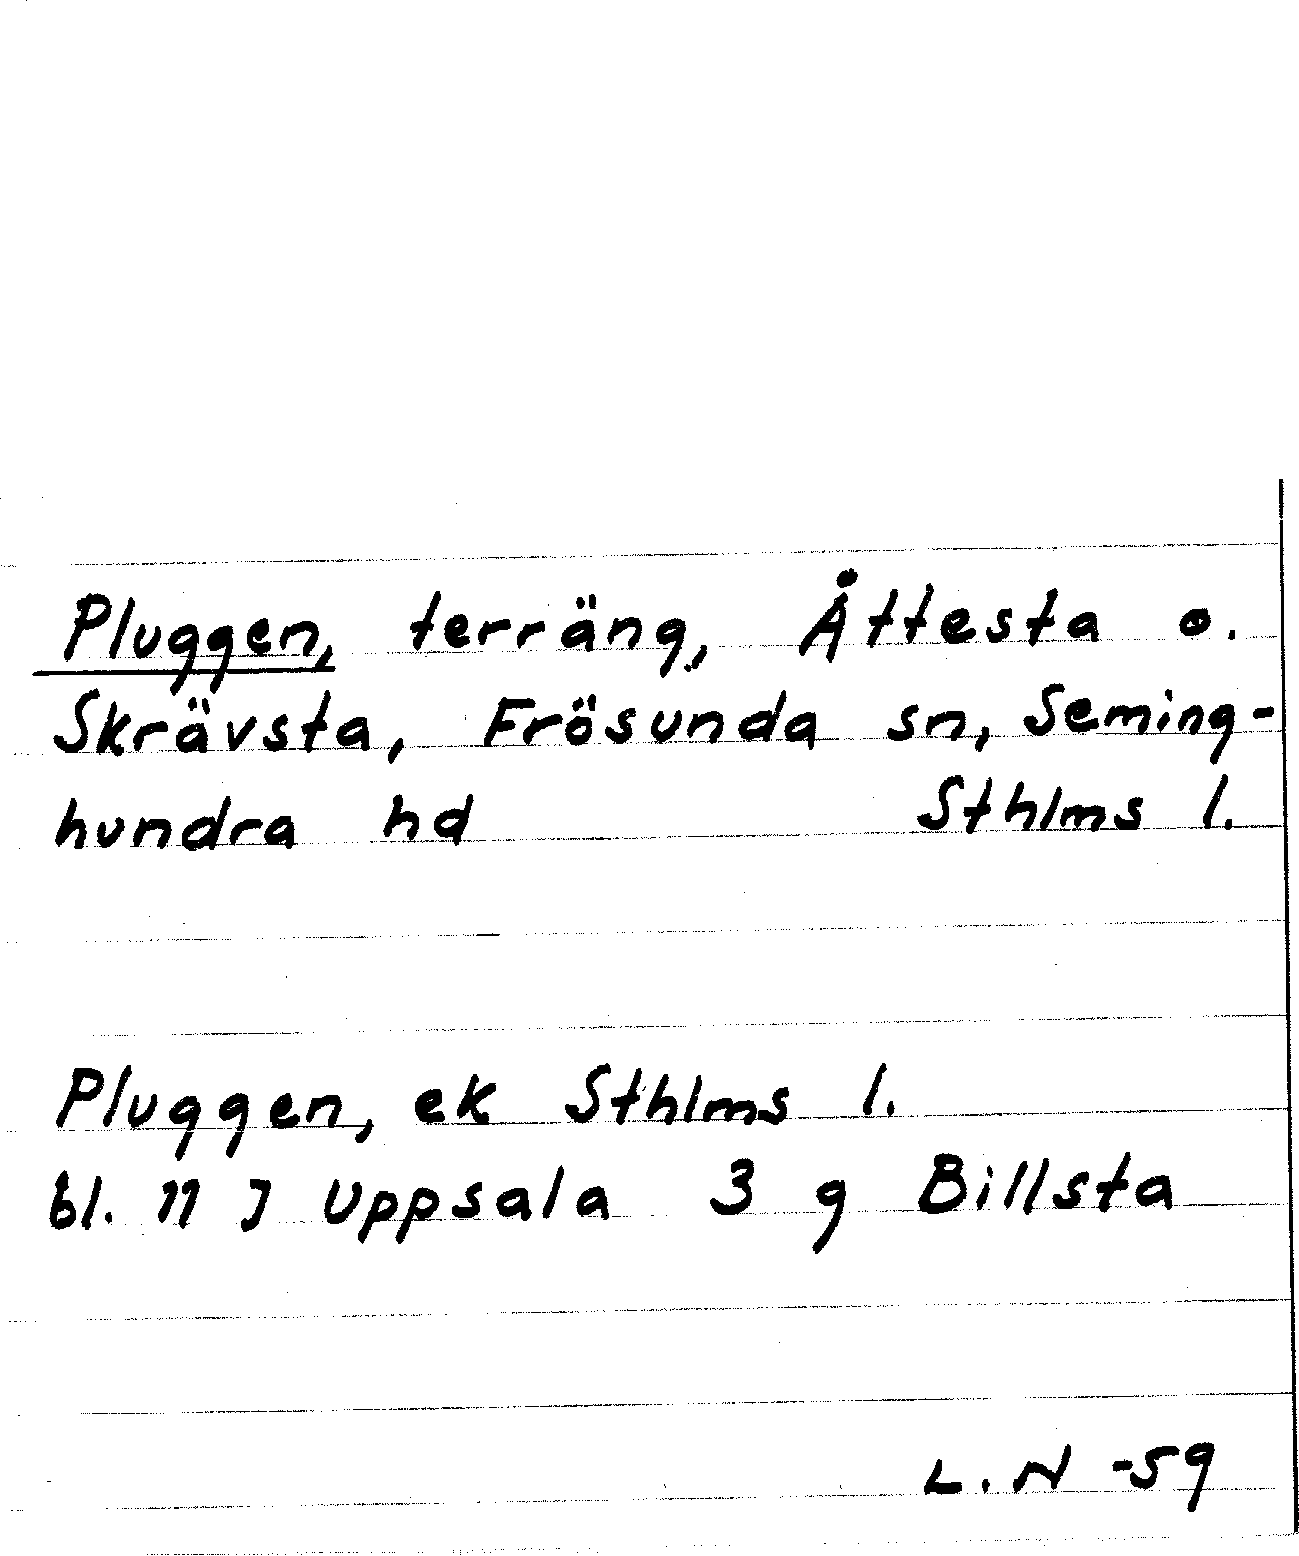 Pluggen, terräng, Åttesta o.
Skrävsta, Frösunda sn, Seming-
hundra hd Sthlms l.
Pluggen, ek Sthlms l.
bl. 11 J Uppsala 3 g Billsta
L.N -59